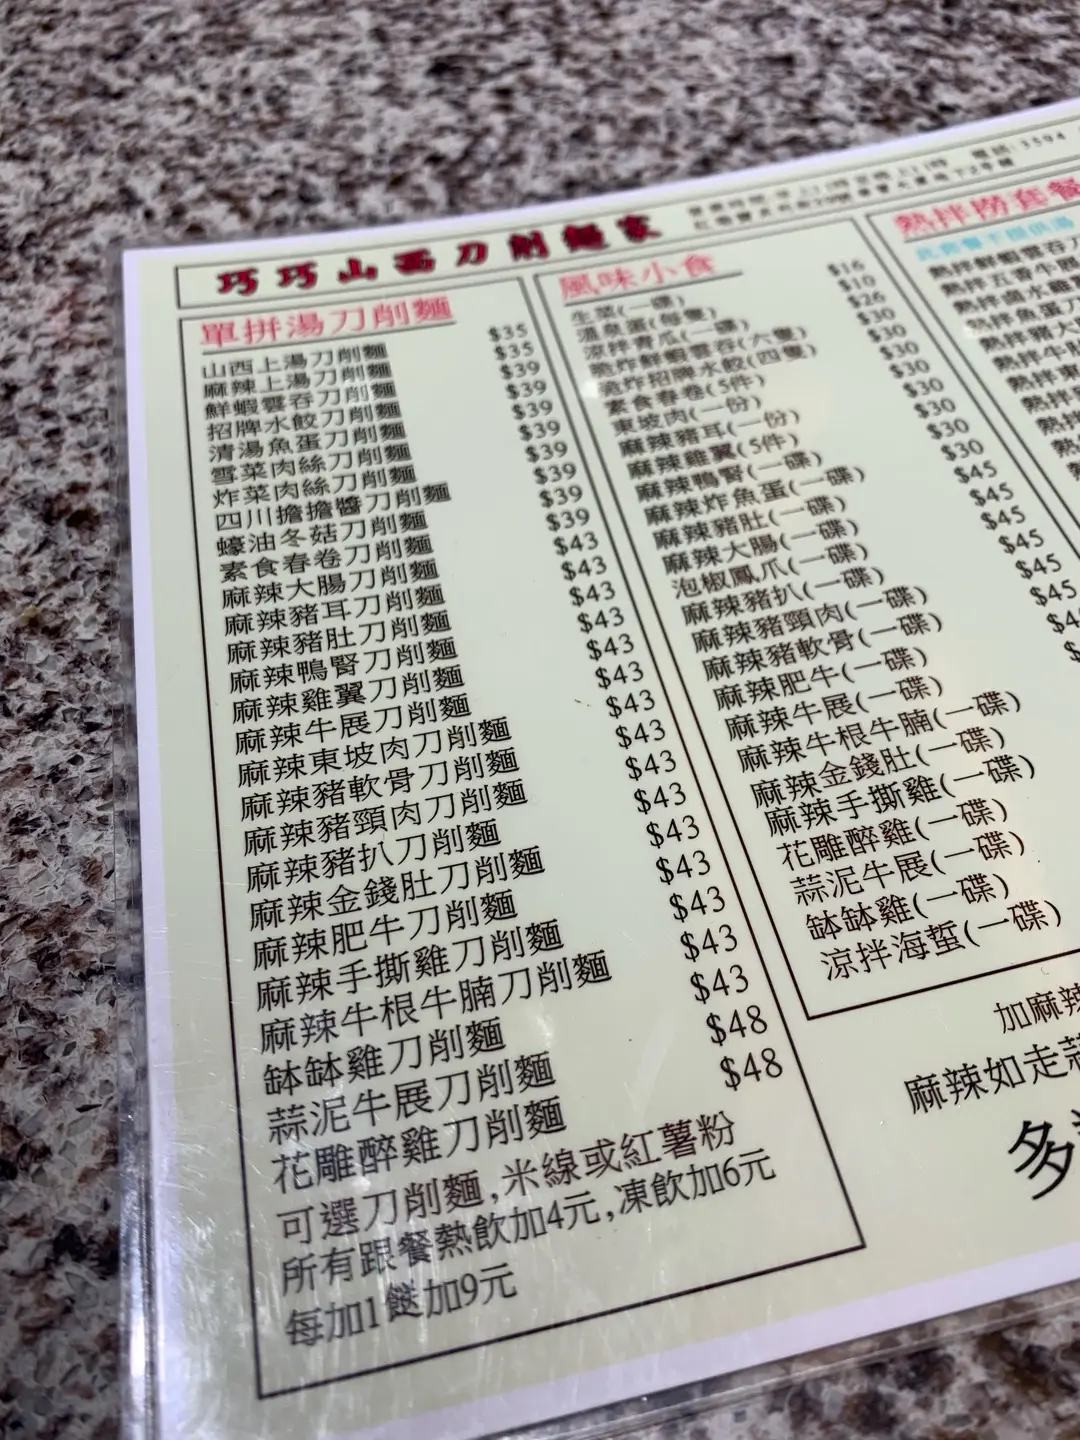 巧巧山西刀削麵家
單拼湯刀削麵
山西上湯刀削麵 $35
麻辣上湯刀削麵 $35
鮮蝦雲吞刀削麵 $39
招牌水餃刀削麵 $39
清湯魚蛋刀削麵 $39
雪菜肉絲刀削麵 $39
炸菜肉絲刀削麵 $39
四川擔擔醬刀削麵 $39
蠔油冬菇刀削麵 $39
素食春卷刀削麵 $43
麻辣大腸刀削麵 $43
麻辣豬耳刀削麵 $43
麻辣豬肚刀削麵 $43
麻辣鴨腎刀削麵 $43
麻辣雞翼刀削麵 $43
麻辣牛展刀削麵 $43
麻辣東坡肉刀削麵 $43
麻辣豬軟骨刀削麵 $43
麻辣豬頸肉刀削麵 $43
麻辣豬扒刀削麵 $43
麻辣金錢肚刀削麵 $43
麻辣肥牛刀削麵 $43
麻辣手撕雞刀削麵 $43
麻辣牛根牛腩刀削麵 $48
缽缽雞刀削麵 $48
蒜泥牛展刀削麵
花雕醉雞刀削麵
可選刀削麵,米線或紅薯粉
所有跟餐熱飲加4元,凍飲加6元
每加1餸加9元
風味小食
生菜(一碟) $16
溫泉蛋(每隻) $10
涼拌青瓜(一碟) $26
脆炸鮮蝦雲吞(六隻) $30
脆炸招牌水餃(四隻) $30
素食春卷(5件) $30
東坡肉(一份) $30
麻辣豬耳(一份) $30
麻辣雞翼(5件) $30
麻辣鴨腎(一碟) $30
麻辣炸魚蛋(一碟) $45
麻辣豬肚(一碟) $45
麻辣大腸(一碟) $45
泡椒鳳爪(一碟) $45
麻辣豬扒(一碟) $45
麻辣豬頸肉(一碟) $45
麻辣豬軟骨(一碟)
麻辣肥牛(一碟)
麻辣牛展(一碟)
麻辣牛根牛腩(一碟)
麻辣金錢肚(一碟)
麻辣手撕雞(一碟)
花雕醉雞(一碟)
蒜泥牛展(一碟)
缽缽雞(一碟)
涼拌海蜇(一碟)
加麻辣
麻辣如走蒜
多
熱拌撈套餐
此套餐不提供湯
熱拌鮮蝦雲吞刀
熱拌五香牛展
熱拌鹵水雞
熱拌魚蛋刀
熱拌豬大
熱拌牛
熱拌東
熱拌